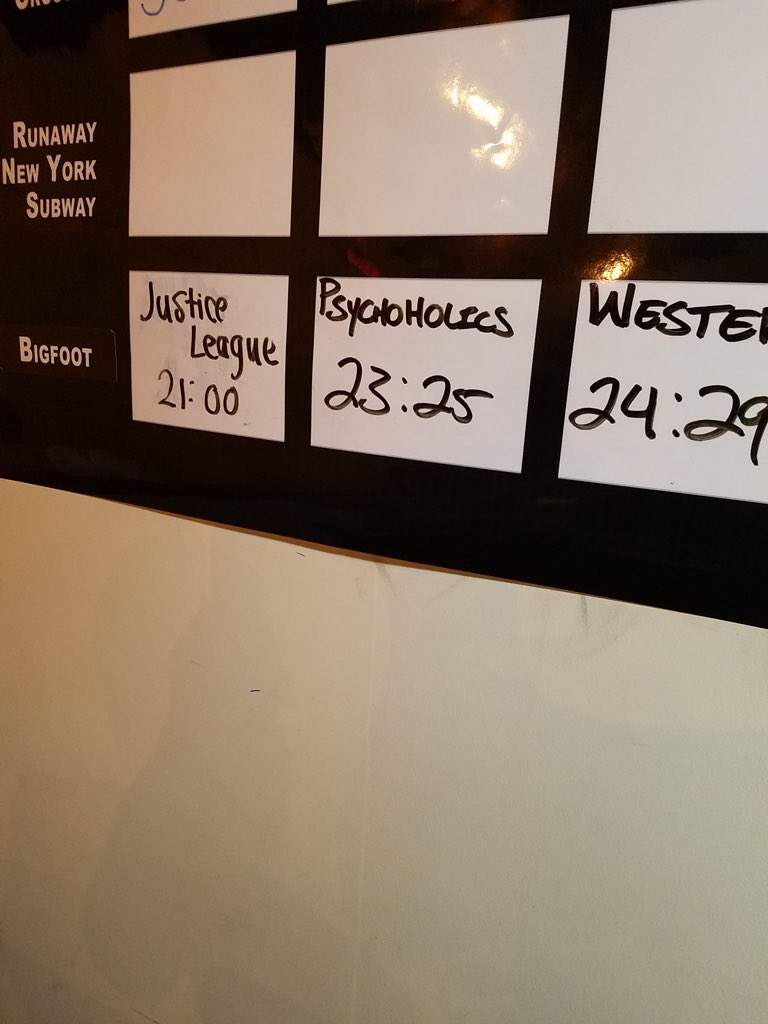 RUNAWAY
NEW YORK
SUBWAY
BIGFOOT
Justice
League
21:00
PSYCHOHOLICS
23:25
24:29